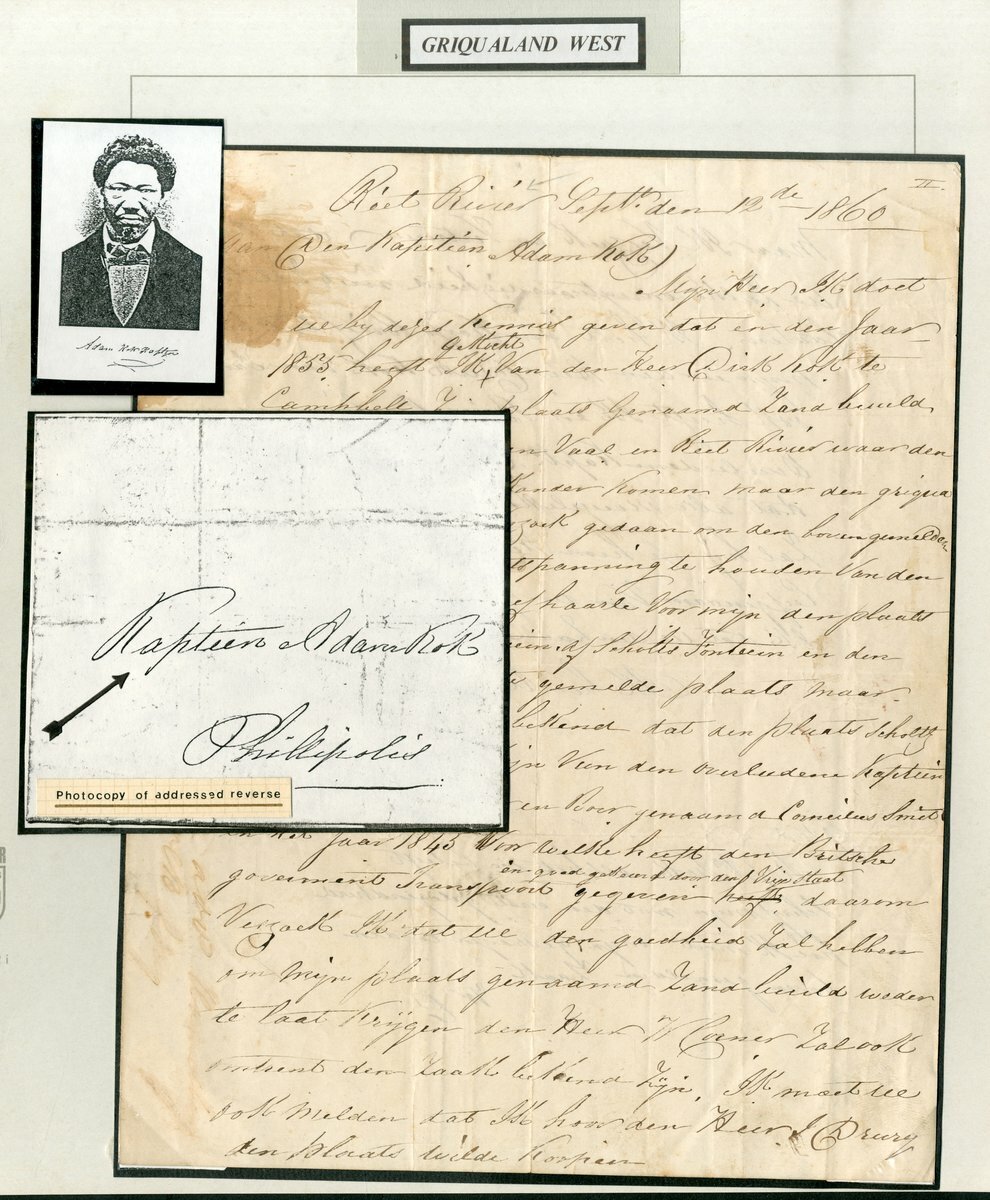 GRIQUALAND WEST
II.
Riet Rivier Septr. den 12de 1860
Aan Den Kapitein Adam Kok
Mijn Heer IK doet
ue by dezes Kennis geven dat in den Jaar
geKocht
1855 heeft IK Van den Heer Dirk Kok te
Campbell Zijn plaats Genaamd Zand
Vaal en Riet Rivier waar den
Kander Komen maar den griqua
gedaan om den bovengemelden
spanning te houden Van den
haarle Voor mijn den plaats
af Scholts Fontein en den
gemelde plaats maar
bekend dat den plaats Scholtz
Van den overledene Kaptein
en Boer genaamd Cornelius Smit
in het Jaar 1843 Voor welke heeft den Britsche
en goed gekeurd door den Vrij Staat
goverment Transport gegeven heeft daarom
Verzoek IK dat ue den goedheid Zal hebben
om mijn plaats genaamd Zand weder
te laat Krijgen den Heer Zal ook
omtrent den Zaak bekend Zijn, IK moet ue
ook melden dat IK hoor den Heer J Drury
den plaats wilde Koopen
Adam Kok
Kaptein Adam Kok
Phillipolis
Photocopy of addressed reverse